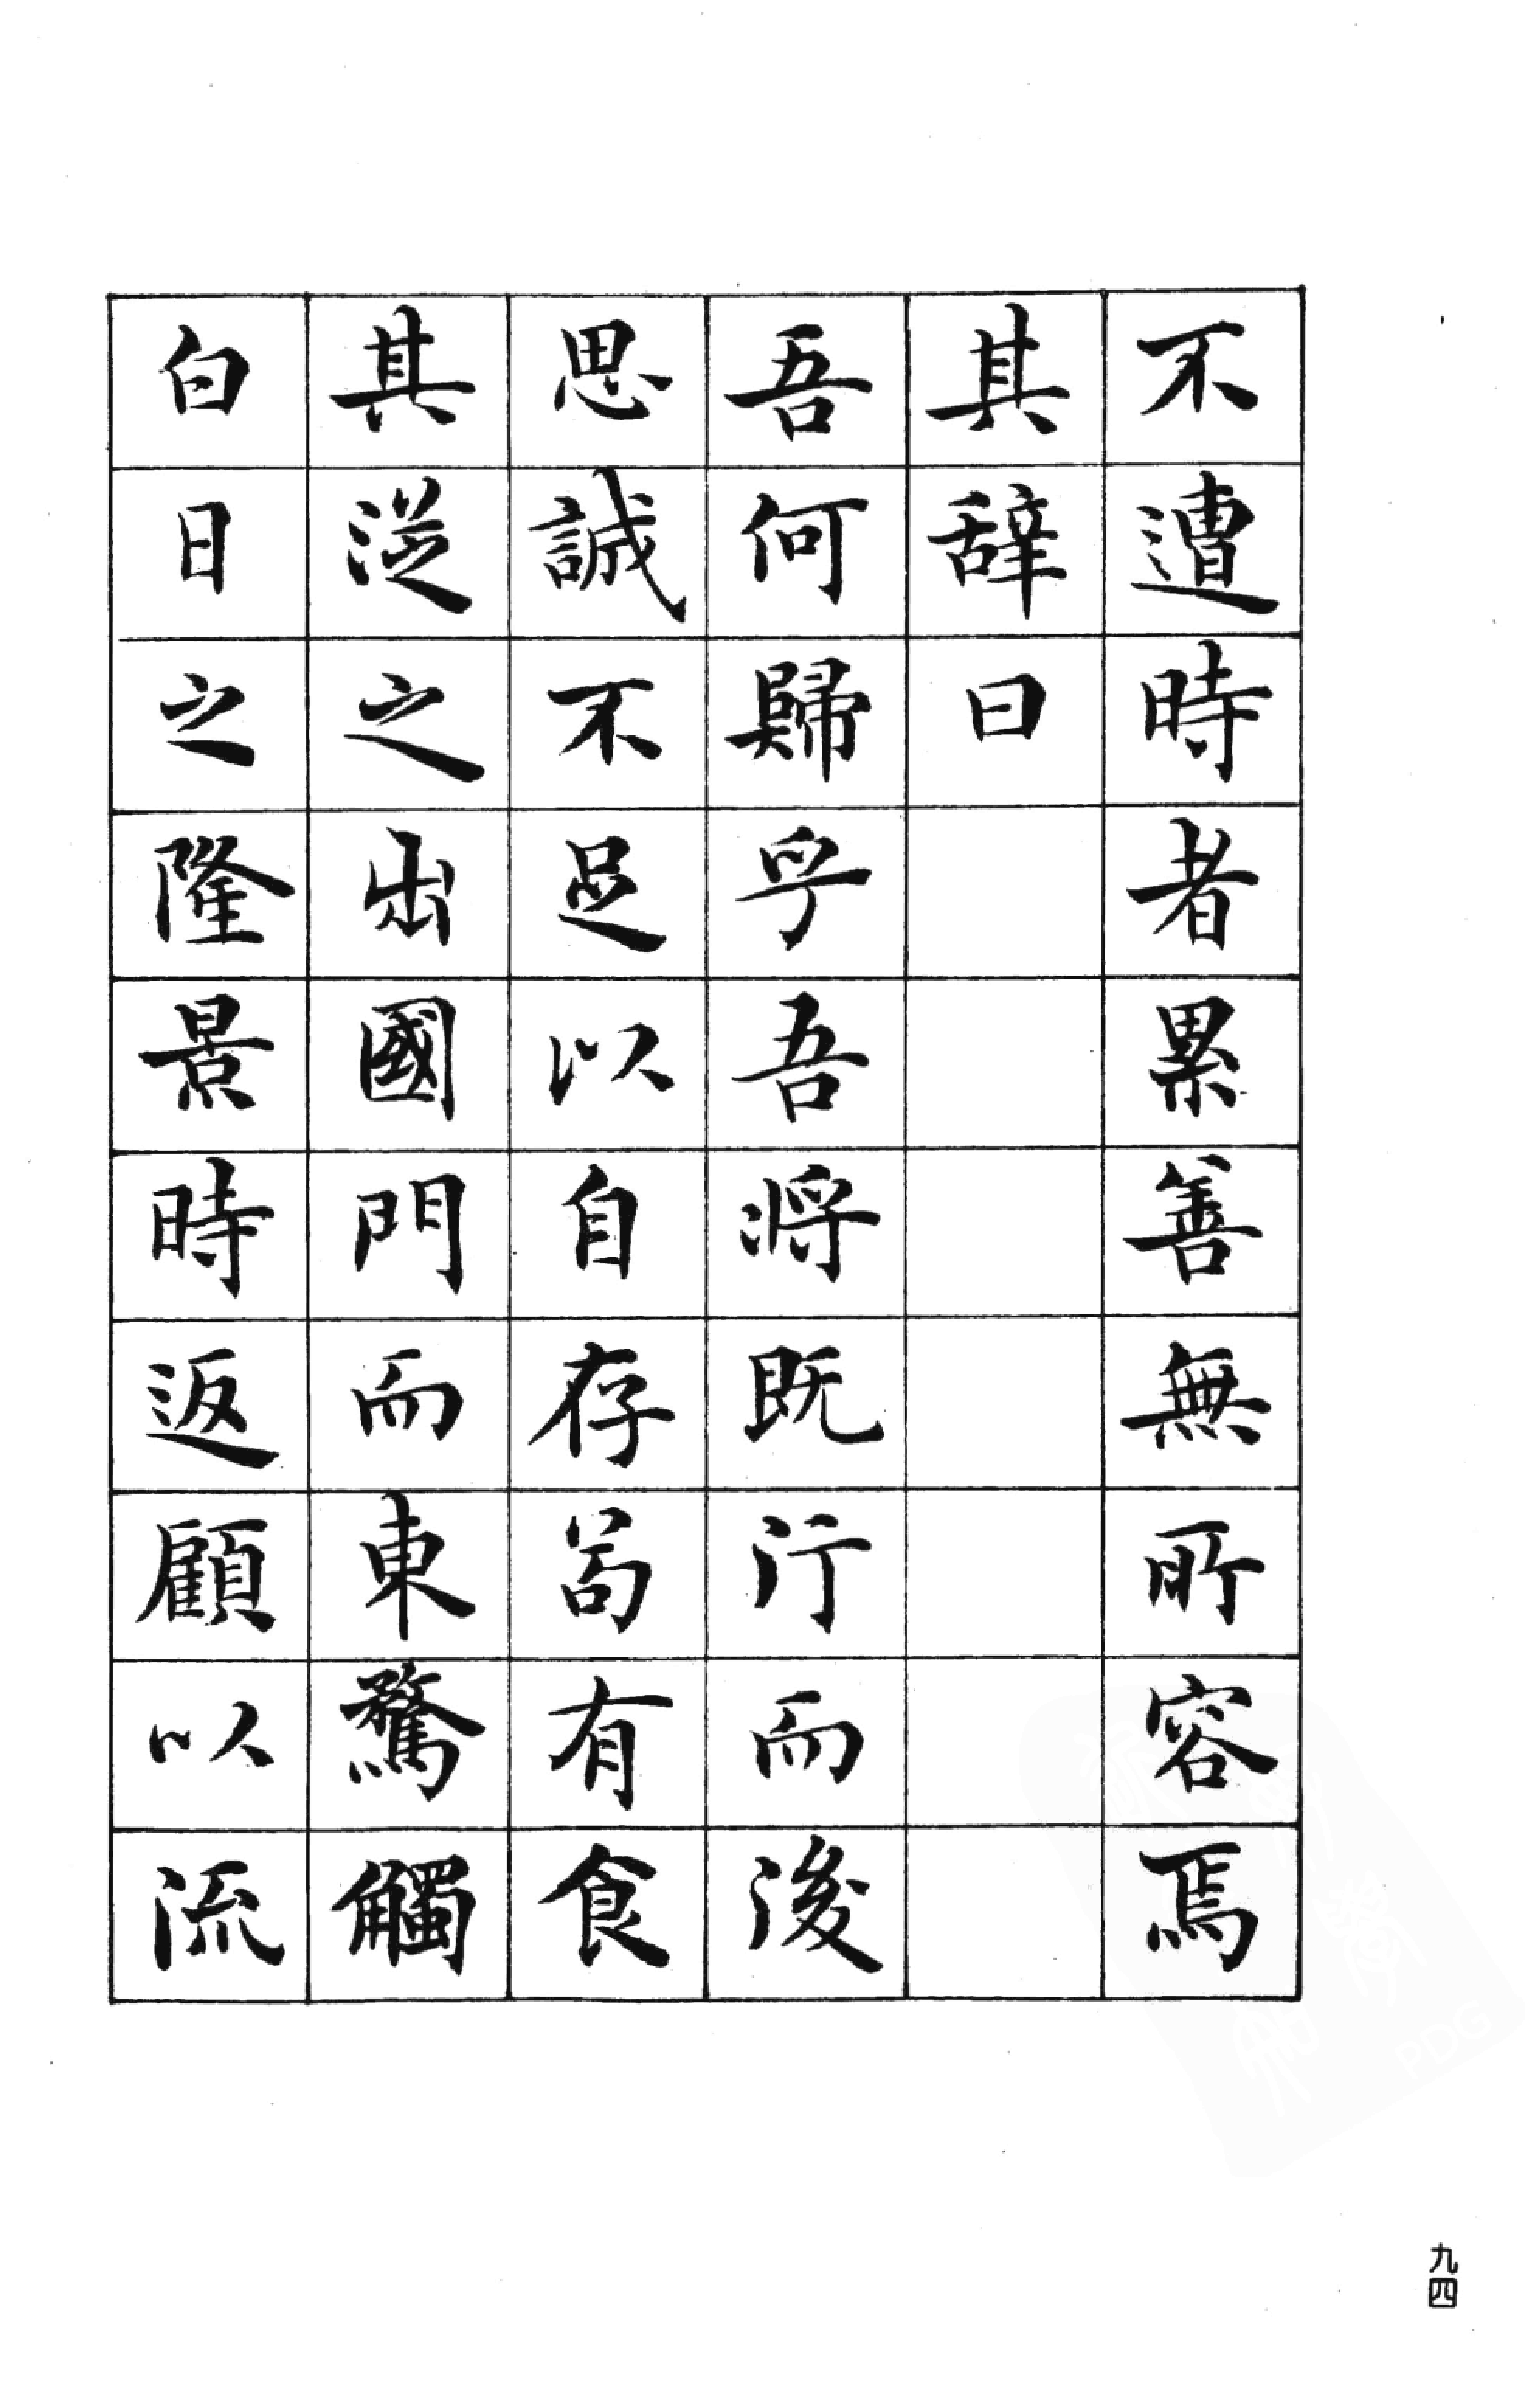 不遭時者累善無所容焉
其辭曰
吾何歸乎吾將既行而後
思誠不足以自存苟有食
其從之出國門而東騖觸
白日之隆景時返顧以流
九四